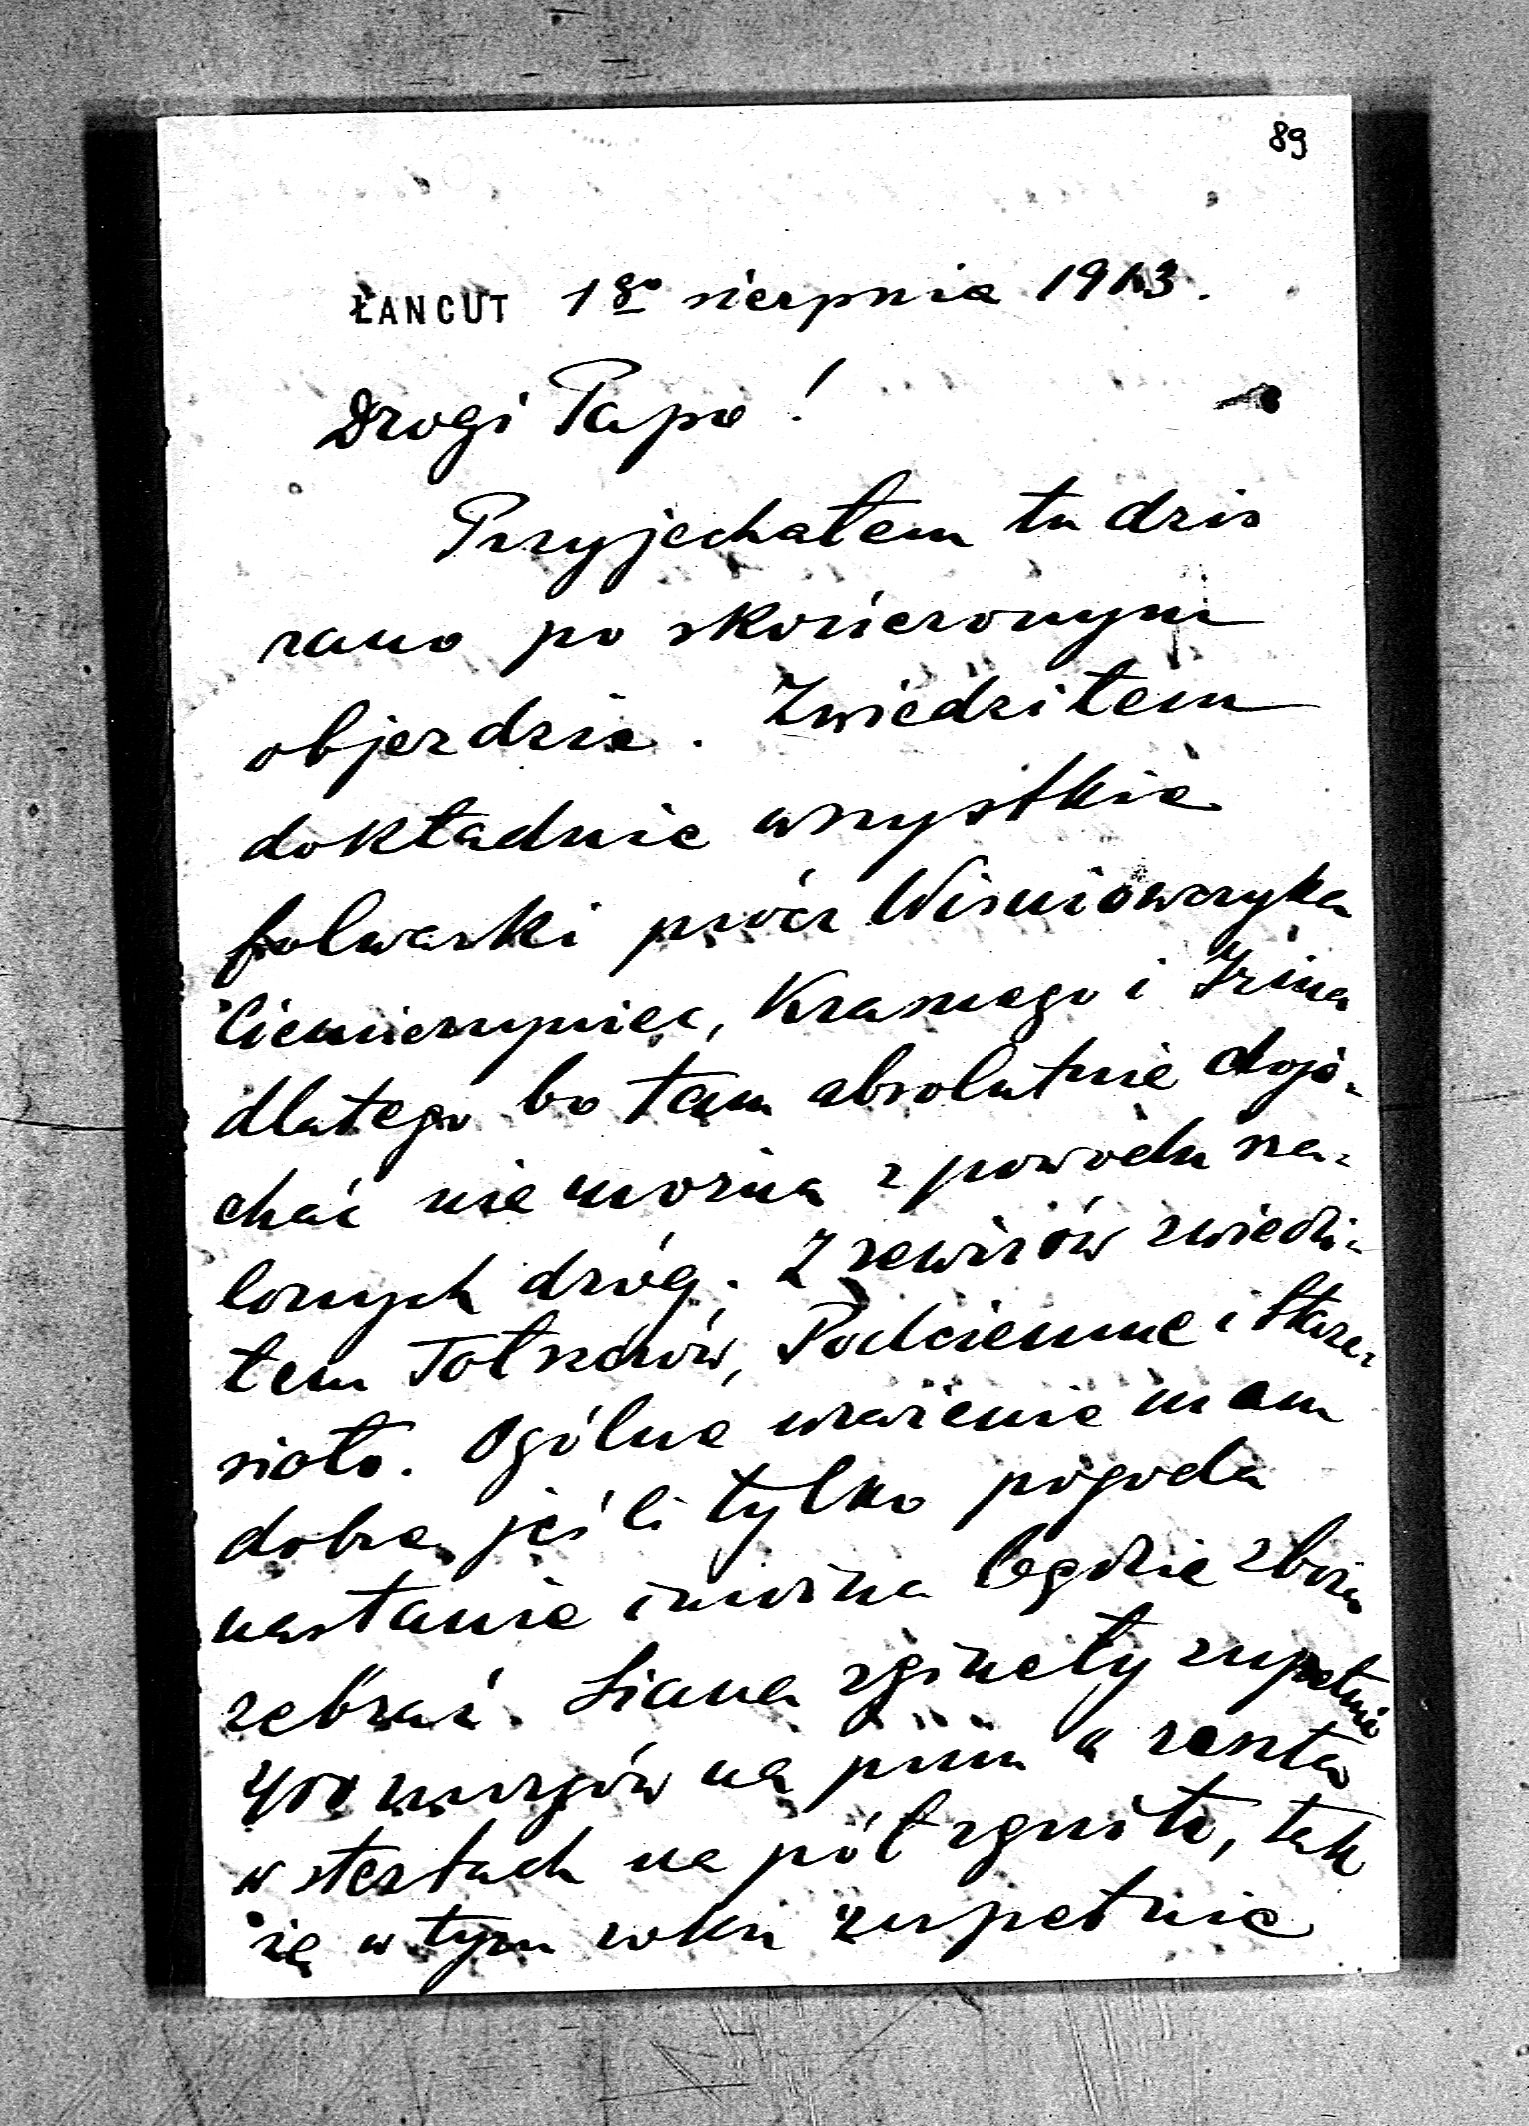 89
ŁANCUT 18go sierpnia 1913.
Drogi Papo!
Przyjechałem tu dzis
rano po skończonym
objezdzie. Zwiedziłem
dokładnie wszystkie
folwarki prócz Wisniowczyka
Ciemierzyniec, Krasnego i
dlatego bo tam absolutnie doje-
chać nie można z powodu sza-
lonych dróg. Z rewirów zwiedzi-
łem Tołszczów, Podciemne i Stare-
sioło. Ogólne wrażenie mam
dobre, jeśli tylko pogoda
nastanie i można będzie zboże
zebrać. Siana zginęły zupełnie
400 morgów na pniu a reszta
w stertach na pół zgniła, tak
się w tym roku zupełnie